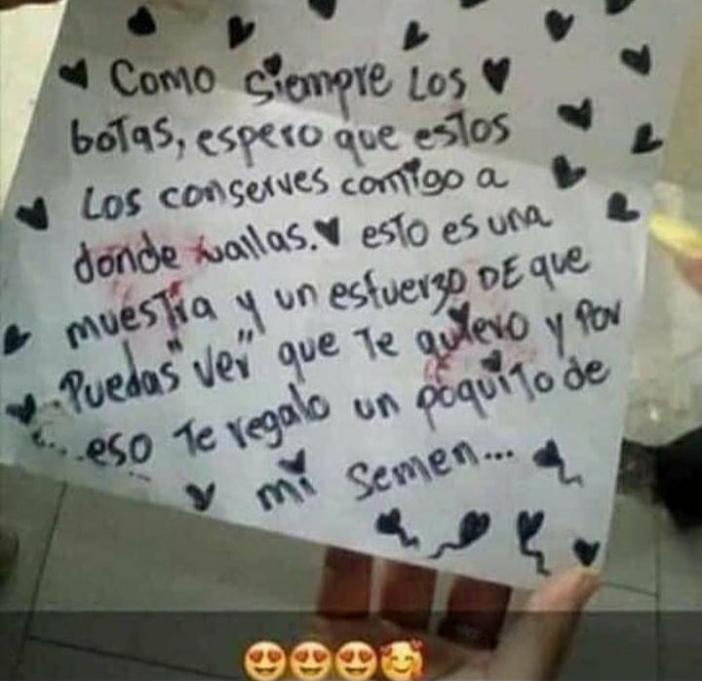 Como siempre los
botas, espero que estos
los conserves comigo a
donde vallas. esto es una
muestra y un esfuerzo DE que
Puedas "ver" que te quiero y Por
eso Te regalo un poquito de
mi semen...